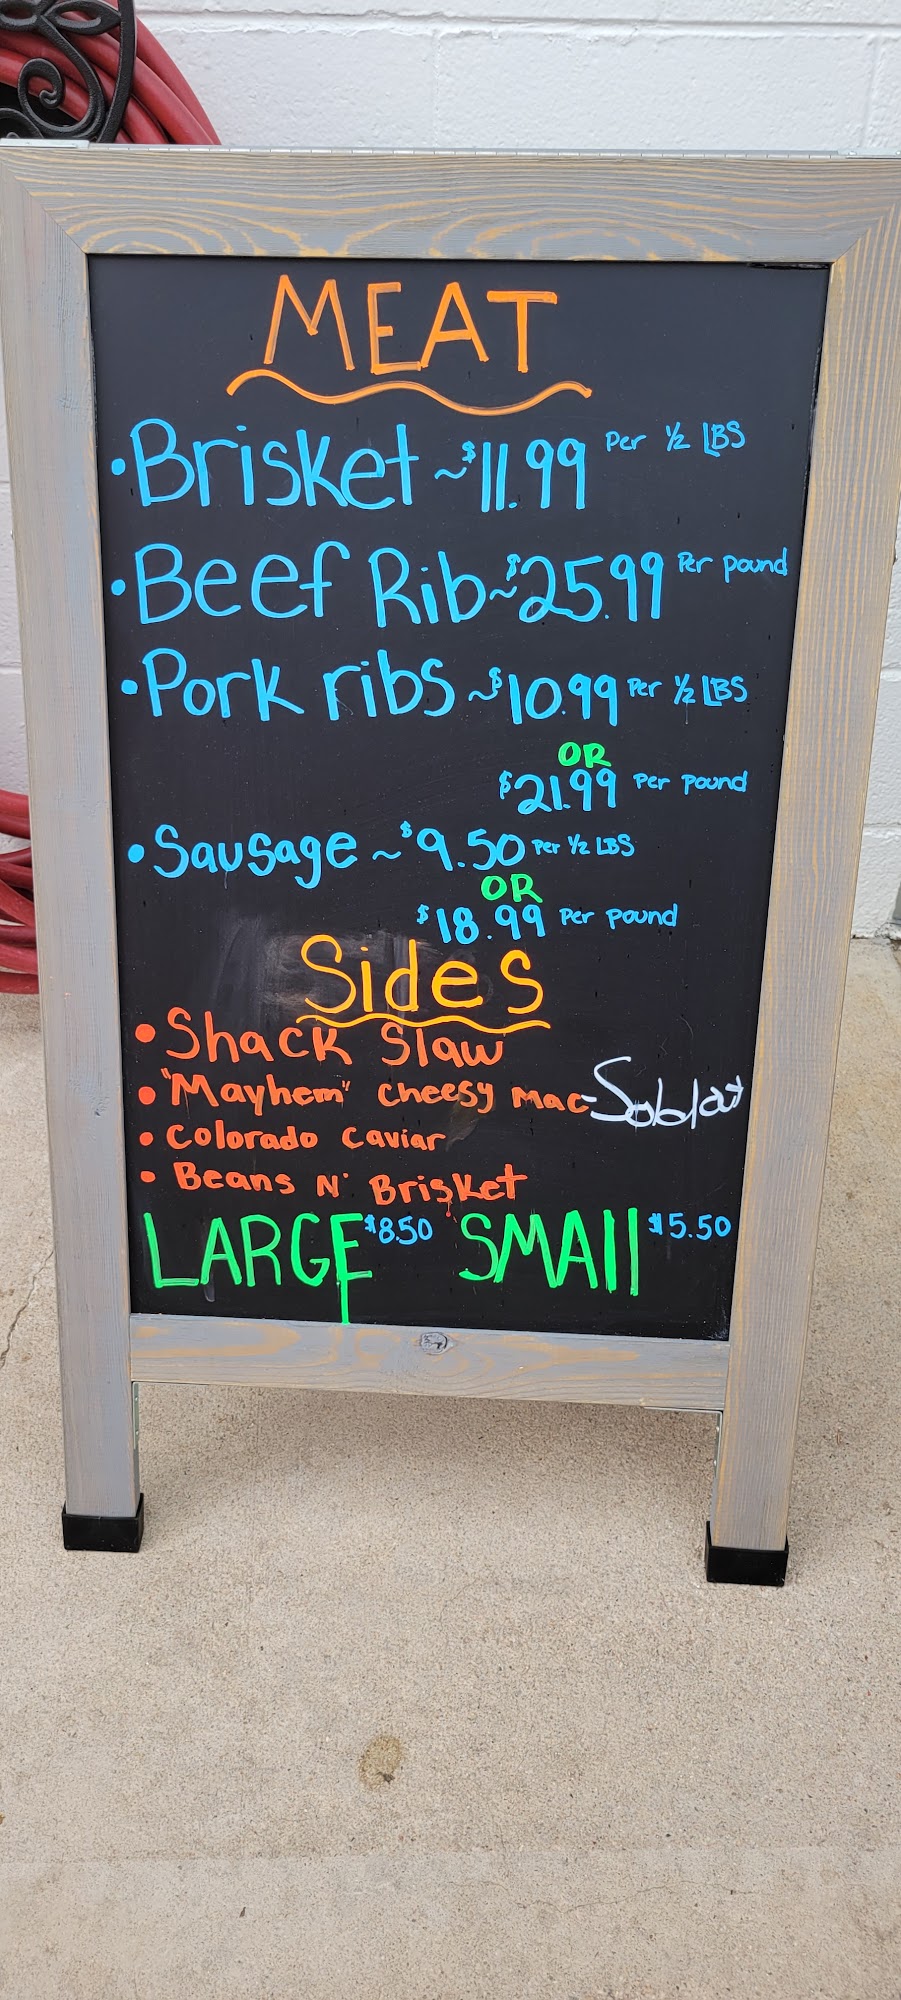 MEAT
• Brisket ~ $11.99 Per 1/2 LBS
• Beef Rib ~ $25.99 Per pound
• Pork ribs ~ $10.99 Per 1/2 LBS
OR
$21.99 Per pound
• Sausage ~ $9.50 Per 1/2 LBS
OR
$18.99 Per pound
Sides
• Shack Slaw
• "Mayhem" Cheesy Mac - Sold out
• Colorado Caviar
• Beans N' Brisket
LARGE $8.50 SMAll $5.50